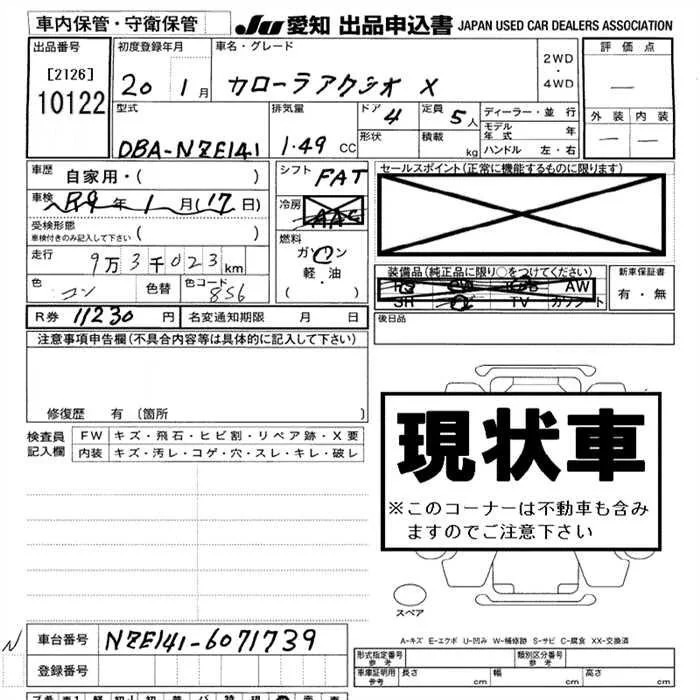 車内保管・守衛保管
JU 愛知 出品申込書 JAPAN USED CAR DEALERS ASSOCIATION
出品番号
[2126]
10122
初度登録年月
20 1月
車名・グレード
カローラアクシオ X
2WD
・
4WD
評価点
—
外装 内装
— —
型式
DBA-NZE141
排気量
1.49 CC
ドア 4
定員 5人
形状
積載 kg
ディーラー・並行
モデル年式 年
ハンドル 左・右
車歴 自家用・( )
車検 R9年1月(17日)
受検形態
車検付きのみ記入して下さい ( )
走行 9万3千023km
色 コン
色替
色コード 8S6
シフト FAT
冷房 AAC
燃料
ガソリン
軽・油
( ・ )
セールスポイント(正常に機能するものに限ります)
装備品(純正品に限り○をつけてください)
AW
SR TV カワシート
新車保証書
有・無
R券 11230円
名変通知期限 月 日
後日品
注意事項申告欄(不具合内容等は具体的に記入して下さい)
修復歴 有〔箇所 〕
検査員
記入欄
FW キズ・飛石・ヒビ割・リペア跡・X要
内装 キズ・汚レ・コゲ・穴・スレ・キレ・破レ
現状車
※このコーナーは不動車も含み
ますのでご注意下さい
スペア
A-キズ E-エクボ U-凹み W-補修跡 S-サビ C-腐食 XX-交換済
N 車台番号 NZE141-6071739
登録番号
形式指定番号
参考
類別区分番号
参考
車庫証明用
参考
長さ cm 幅 cm 高さ cm